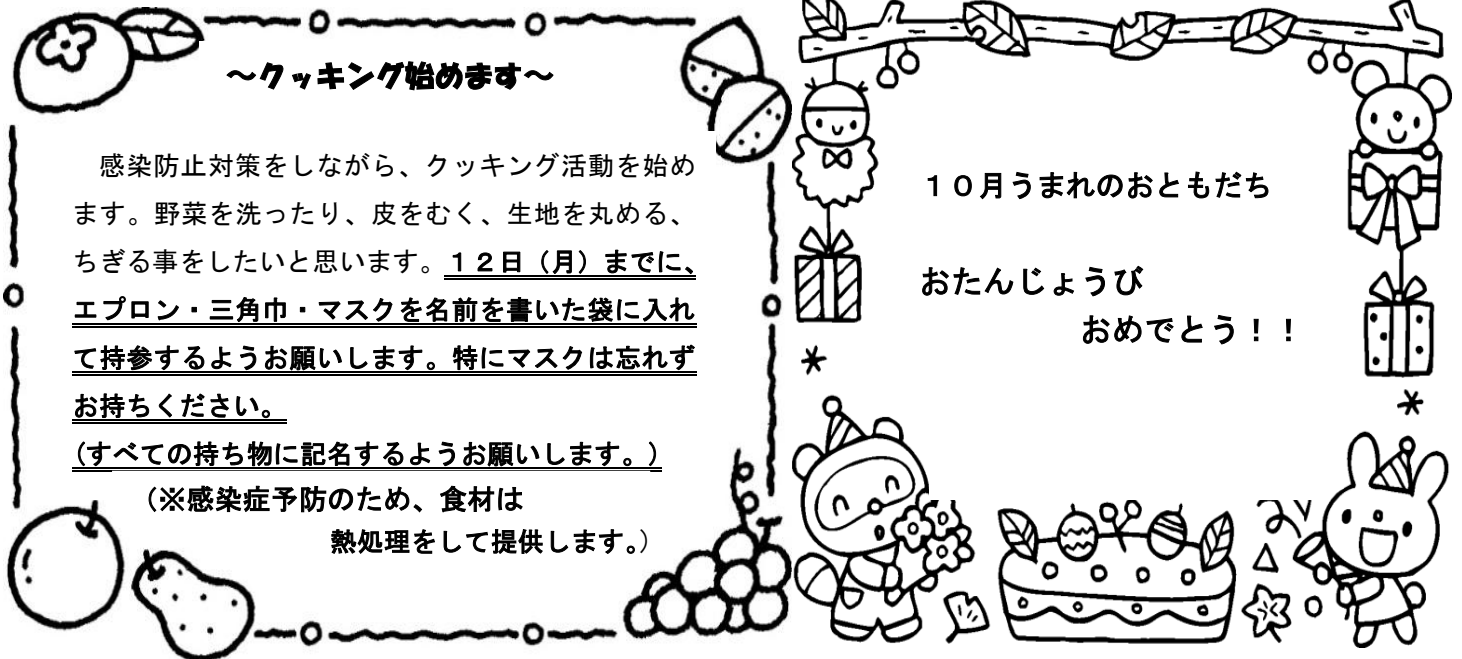 ～クッキング始めます～
感染防止対策をしながら、クッキング活動を始め
ます。野菜を洗ったり、皮をむく、生地を丸める、
ちぎる事をしたいと思います。１２日（月）までに、
エプロン・三角巾・マスクを名前を書いた袋に入れ
て持参するようお願いします。特にマスクは忘れず
お持ちください。
（すべての持ち物に記名するようお願いします。）
（※感染症予防のため、食材は
熱処理をして提供します。）
１０月うまれのおともだち
おたんじょうび
おめでとう！！